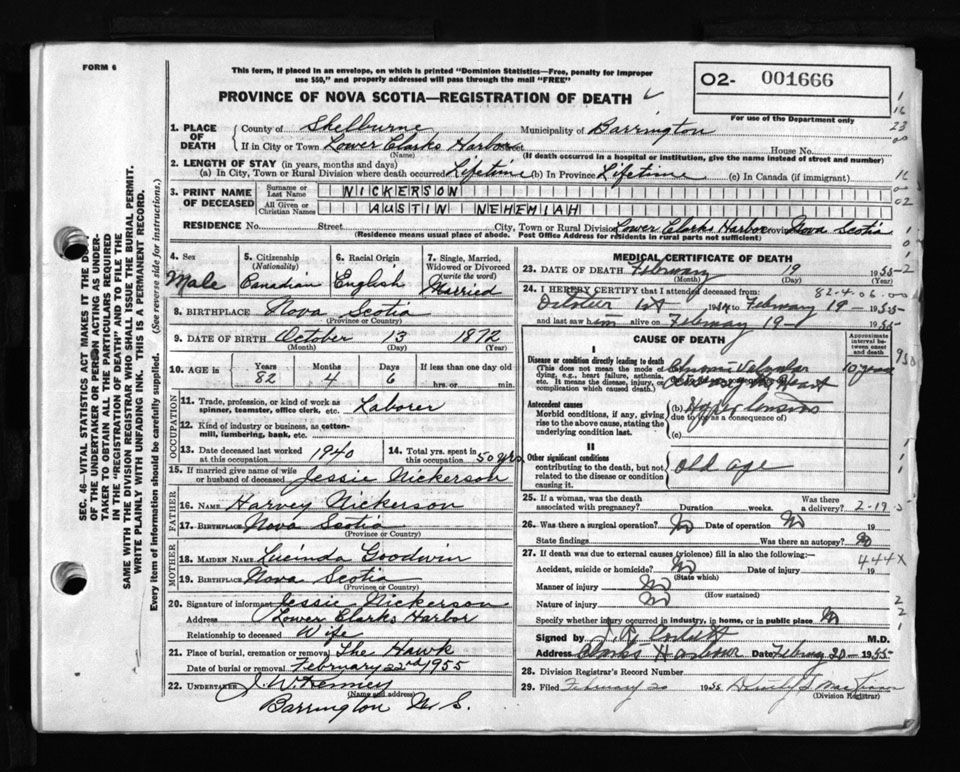 FORM 6
This form, if placed in an envelope, on which is printed "Dominion Statistics—Free, penalty for improper
use $50," and properly addressed will pass through the mail "FREE"
O2- 001666
For use of the Department only
PROVINCE OF NOVA SCOTIA—REGISTRATION OF DEATH
1. PLACE OF DEATH County of Shelburne Municipality of Barrington
If in City or Town Lower Clarks Harbor House No.
(Name) (If death occurred in a hospital or institution, give the name instead of street and number)
2. LENGTH OF STAY (in years, months and days)
(a) In City, Town or Rural Division where death occurred Lifetime (b) In Province Lifetime (c) In Canada (if immigrant)
3. PRINT NAME OF DECEASED Surname or Last Name NICKERSON
All Given or Christian Names AUSTIN NEHEMIAH
RESIDENCE No. Street City, Town or Rural Division Lower Clarks Harbor Province Nova Scotia
(Residence means usual place of abode. Post Office Address for residents in rural parts not sufficient)
4. Sex Male
5. Citizenship (Nationality) Canadian
6. Racial Origin English
7. Single, Married, Widowed or Divorced (write the word) Married
8. BIRTHPLACE Nova Scotia
(Province or Country)
9. DATE OF BIRTH October 13 1872
(Month) (Day) (Year)
10. AGE in Years 82 Months 4 Days 6 If less than one day old hrs. or min.
OCCUPATION
11. Trade, profession, or kind of work as spinner, teamster, office clerk, etc. Laborer
12. Kind of industry or business, as cotton-mill, lumbering, bank, etc.
13. Date deceased last worked at this occupation 1940
14. Total yrs. spent in this occupation 50 yrs
15. If married give name of wife or husband of deceased Jessie Nickerson
FATHER
16. NAME Harvey Nickerson
17. BIRTHPLACE Nova Scotia
(Province or Country)
MOTHER
18. MAIDEN NAME Lucinda Goodwin
19. BIRTHPLACE Nova Scotia
(Province or Country)
20. Signature of informant Jessie Nickerson
Address Lower Clarks Harbor
Relationship to deceased Wife
21. Place of burial, cremation or removal The Hawk
Date of burial or removal February 22nd 1955
22. UNDERTAKER J. W. Kenney
(Name and address)
Barrington N. S.
MEDICAL CERTIFICATE OF DEATH
23. DATE OF DEATH February 19 1955
(Month) (Day) (Year)
24. I HEREBY CERTIFY that I attended deceased from: 82-4-06-00
October 1st 1954 to February 19 - 1955
and last saw him alive on February 19 - 1955
CAUSE OF DEATH
Approximate interval between onset and death
I
Disease or condition directly leading to death
(This does not mean the mode of dying, e.g., heart failure, asthenia, etc. It means the disease, injury, or complication which caused death.)
10 years
Antecedent causes
Morbid conditions, if any, giving rise to the above cause, stating the underlying condition last.
(b)
due to (or as a consequence of)
(c)
II
Other significant conditions
contributing to the death, but not related to the disease or condition causing it.
Old age
25. If a woman, was the death associated with pregnancy? Duration weeks. Was there a delivery?
26. Was there a surgical operation? No Date of operation No 19
State findings Was there an autopsy? No
27. If death was due to external causes (violence) fill in also the following:—
444X
Accident, suicide or homicide? No Date of injury 19
(State which)
Manner of injury No
(How sustained)
Nature of injury No
Specify whether injury occurred in industry, in home, or in public place No
Signed by M.D.
Address Clarks Harbour Date February 20 - 1955
28. Division Registrar's Record Number
29. Filed February 20 1955
(Division Registrar)
SEC. 46—VITAL STATISTICS ACT MAKES IT THE
OF THE UNDERTAKER OR PERSON ACTING AS UNDER-
TAKER TO OBTAIN ALL THE PARTICULARS REQUIRED
IN THE "REGISTRATION OF DEATH" AND TO FILE THE
SAME WITH THE DIVISION REGISTRAR WHO SHALL ISSUE THE BURIAL PERMIT.
WRITE PLAINLY WITH UNFADING INK. THIS IS A PERMANENT RECORD.
Every item of information should be carefully supplied. (See reverse side for instructions.)